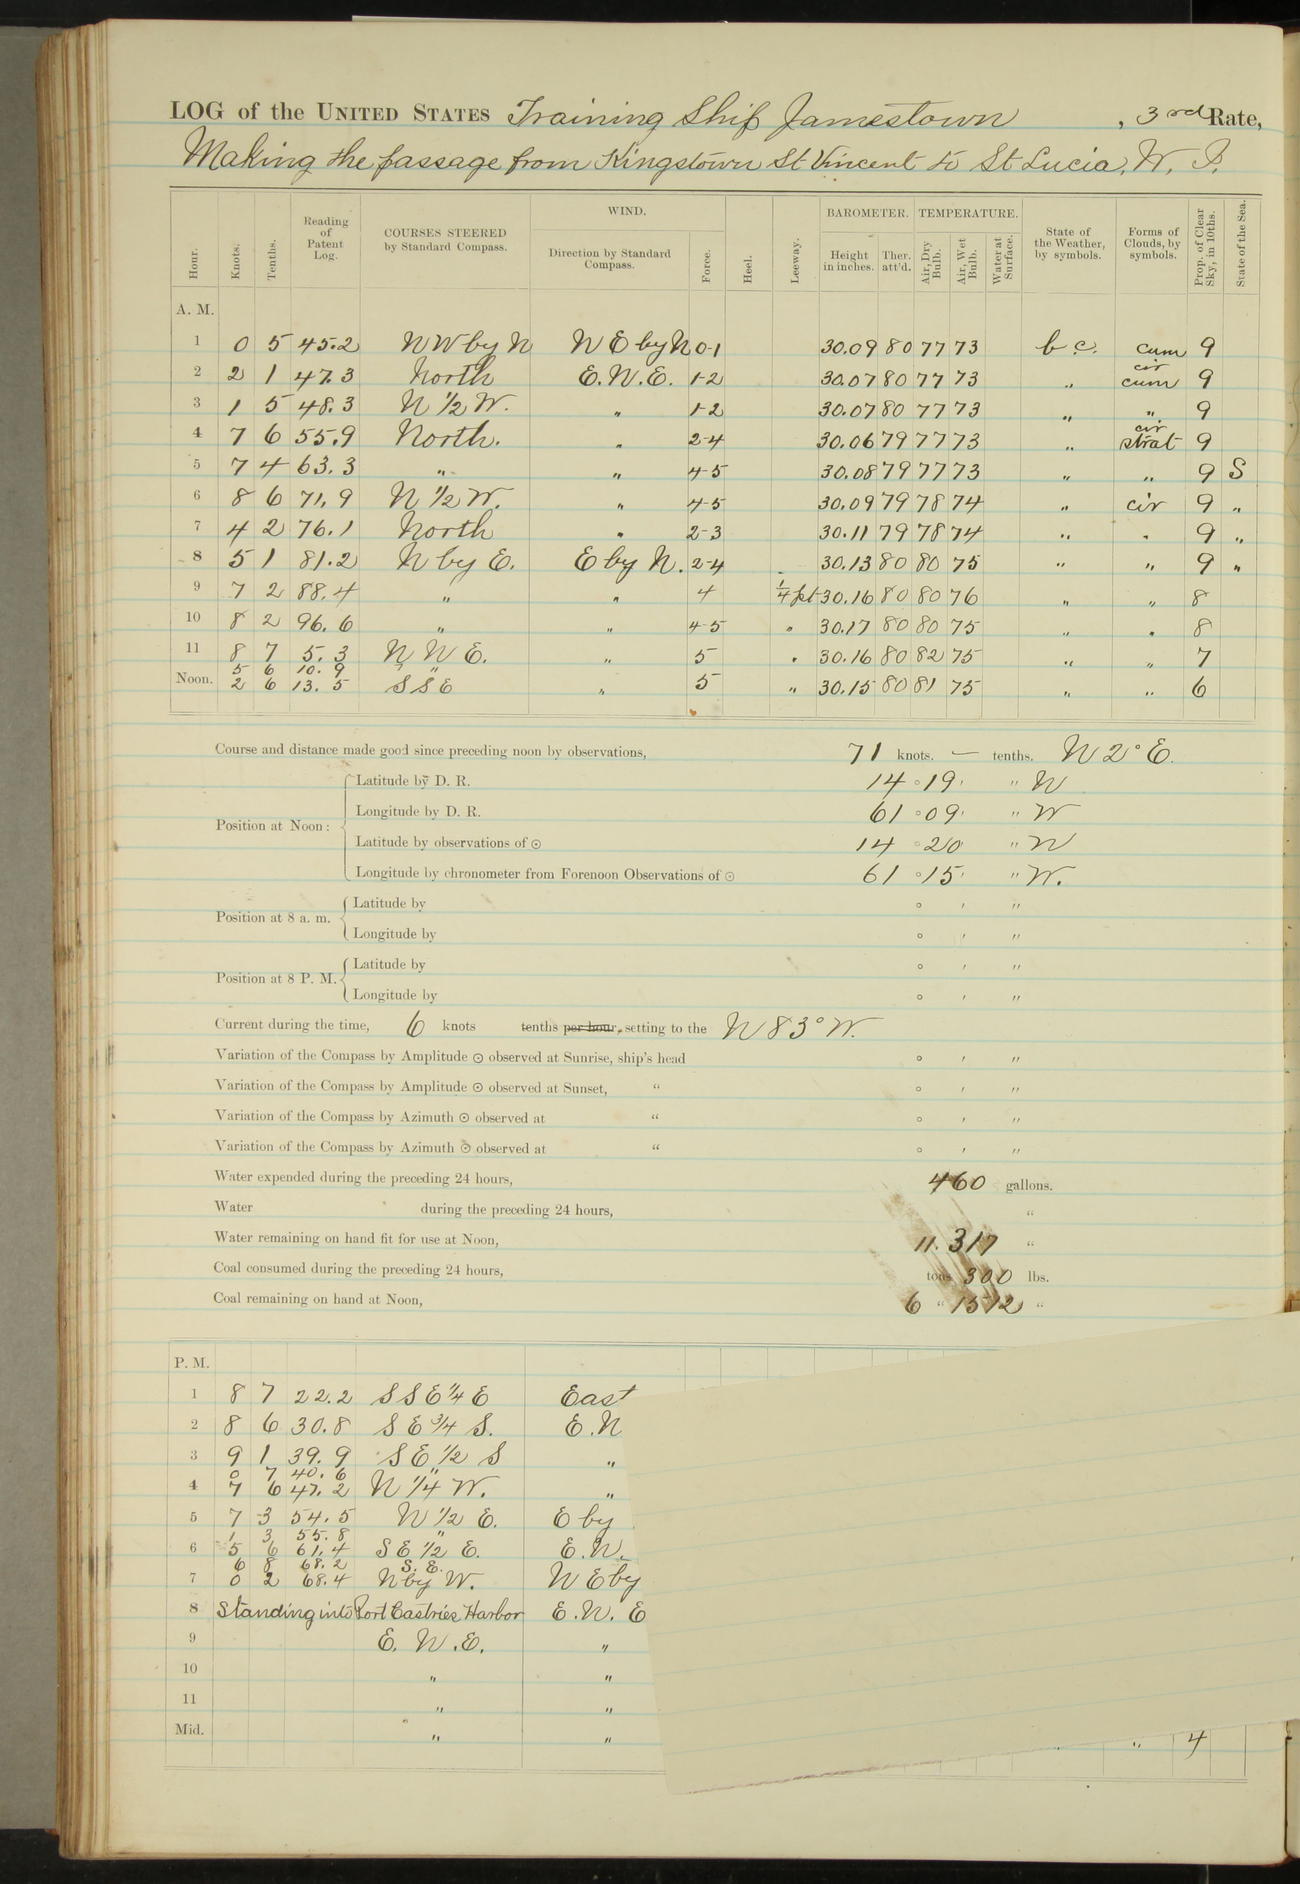 LOG of the UNITED STATES Training Ship Jamestown, 3rd Rate,
Making the passage from Kingstown St Vincent to St Lucia, W. I.
Hour. Knots. Tenths. Reading of Patent Log. COURSES STEERED by Standard Compass. WIND. Direction by Standard Compass. Force. Heel. Leeway. BAROMETER. Height in inches. Ther. att'd. TEMPERATURE. Air, Dry Bulb. Air, Wet Bulb. Water at Surface. State of the Weather, by symbols. Forms of Clouds, by symbols. Prop. of Clear Sky, in 10ths. State of the Sea.
A. M.
1 0 5 45.2 N W by N N E by N 0-1 30.09 80 77 73 b c. cum 9
2 2 1 47.3 North E.N.E. 1-2 30.07 80 77 73 " cir cum 9
3 1 5 48.3 N 1/2 W. " 1-2 30.07 80 77 73 " " 9
4 7 6 55.9 North. " 2-4 30.06 79 77 73 " cir strat 9
5 7 4 63.3 " " 4-5 30.08 79 77 73 " " 9 S
6 8 6 71.9 N 1/2 W. " 4-5 30.09 79 78 74 " cir 9 "
7 4 2 76.1 North " 2-3 30.11 79 78 74 " " 9 "
8 5 1 81.2 N by E. E by N. 2-4 30.13 80 80 75 " " 9 "
9 7 2 88.4 " " 4 1/4 pt 30.16 80 80 76 " " 8
10 8 2 96.6 " " 4-5 " 30.17 80 80 75 " " 8
11 8 7 5.3 N N E. " 5 " 30.16 80 82 75 " " 7
5 6 10.9 " "
Noon. 2 6 13.5 S S E " 5 " 30.15 80 81 75 " " 6
Course and distance made good since preceding noon by observations, 71 knots. — tenths. N 2° E.
Position at Noon:
Latitude by D. R. 14 ° 19 ' " N
Longitude by D. R. 61 ° 09 ' " W
Latitude by observations of ☉ 14 ° 20 ' " N
Longitude by chronometer from Forenoon Observations of ☉ 61 ° 15 ' " W.
Position at 8 a. m.
Latitude by ° ' "
Longitude by ° ' "
Position at 8 P. M.
Latitude by ° ' "
Longitude by ° ' "
Current during the time, 6 knots tenths per hour, setting to the N 83° W.
Variation of the Compass by Amplitude ☉ observed at Sunrise, ship's head ° ' "
Variation of the Compass by Amplitude ☉ observed at Sunset, " ° ' "
Variation of the Compass by Azimuth ☉ observed at " ° ' "
Variation of the Compass by Azimuth ☉ observed at " ° ' "
Water expended during the preceding 24 hours, 460 gallons.
Water during the preceding 24 hours, "
Water remaining on hand fit for use at Noon, 11.317 "
Coal consumed during the preceding 24 hours, tons 300 lbs.
Coal remaining on hand at Noon, 6 " 1512 "
P. M.
1 8 7 22.2 S S E 1/4 E East
2 8 6 30.8 S E 3/4 S. E.N
3 9 1 39.9 S E 1/2 S "
0 7 40.6 "
4 7 6 47.2 N 1/4 W. "
5 7 3 54.5 N 1/2 E. E by
1 3 55.8 "
6 5 6 61.4 S E 1/2 E. E.N.
6 8 68.2 S. E.
7 0 2 68.4 N by W. N E by
8 Standing into Port Castries Harbor E.N.E
9 E. N.E. "
10 " "
11 " "
Mid. " " " 4